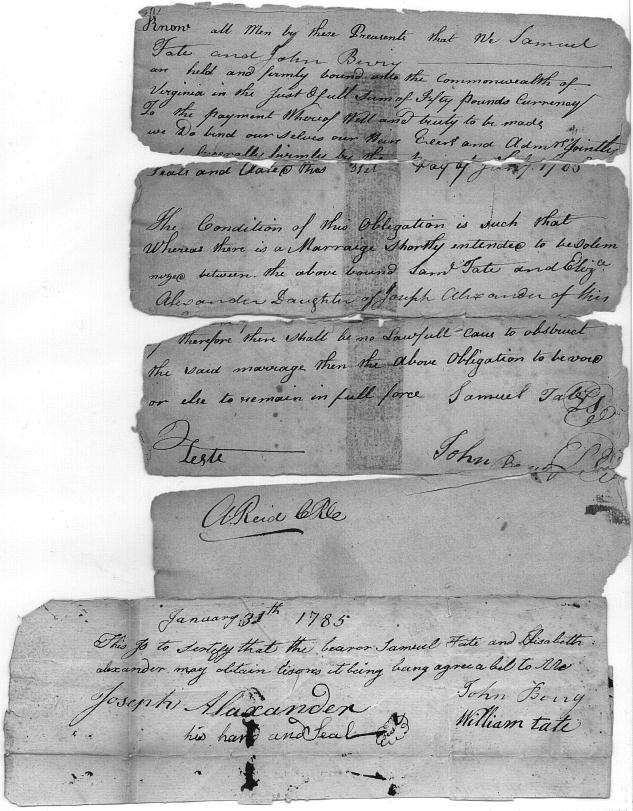 Know all Men by these Preasents that We Samuel
Tate and John Berry
are held and firmly bound unto the Commonwealth of
Virginia in the Just & full Sum of Fifty pounds Currency
To the payment Whereof Well and truly to be made
we Do bind our selves our Heirs Exers and Admrs Jointly
Severally firmly by the
Seals and dated this 31st day of Jany. 1785
The Condition of this Obligation is such that
Whereas there is a Marraige Shortly intended to be Solem
nized between the above bound Saml Tate and Eliza.
Alexander Daughter of Joseph Alexander of this
therefore there shall be no Lawfull Caus to obstruct
the said marriage then the above Obligation to be void
or else to remain in full force Samuel Tate LS
Teste John Berry
A Reid Clk
January 31th 1785
This Is to sertify that the bearor Samuel Tate and Elisabeth
alexander may obtain lisons it being being agreeabil to Me
Joseph Alexander John Berry
his hand and Seal William tate